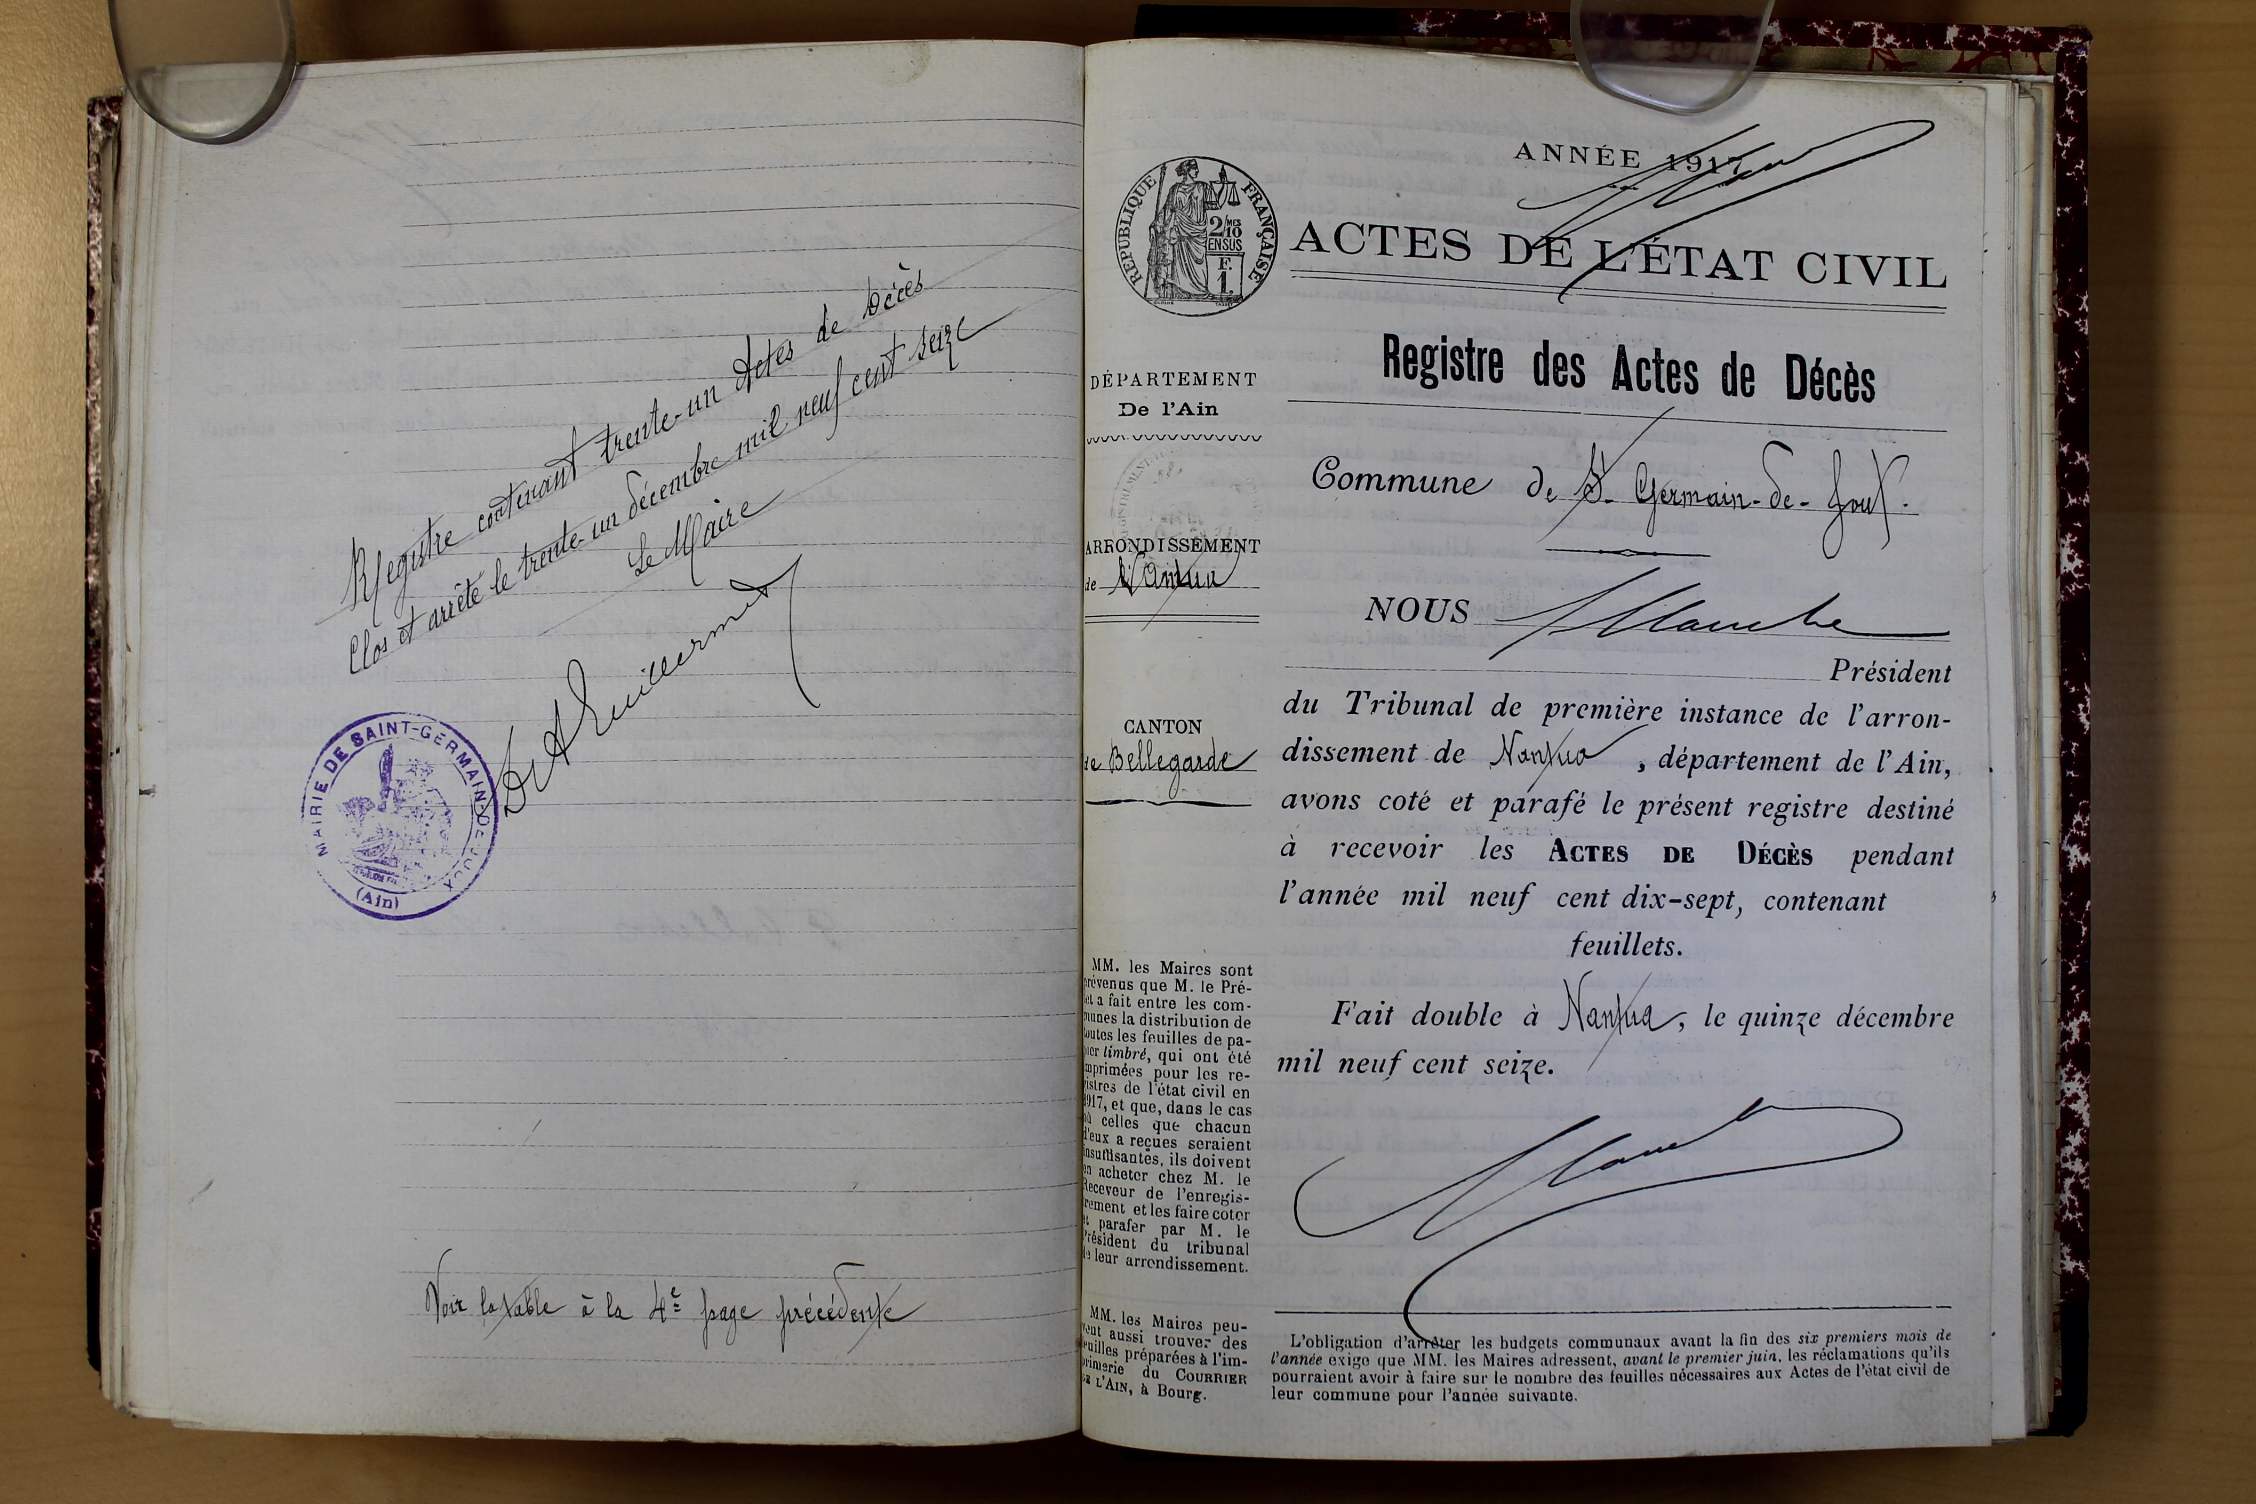 Registre contenant trente-un Actes de Décès
Clos et arrêté le trente-un décembre mil neuf cent seize
Le Maire
Guillermet
MAIRIE DE SAINT-GERMAIN-DE-JOUX
(Ain)
Voir la table à la 4e page précédente
ANNÉE 1917
RÉPUBLIQUE FRANÇAISE
2/10 MES
EN SUS
F.
1.
ACTES DE L'ÉTAT CIVIL
Registre des Actes de Décès
DÉPARTEMENT
De l'Ain
ARRONDISSEMENT
de Nantua
CANTON
de Bellegarde
MM. les Maires sont
prévenus que M. le Pré-
fet a fait entre les com-
munes la distribution de
toutes les feuilles de pa-
pier timbré, qui ont été
imprimées pour les re-
gistres de l'état civil en
1917, et que, dans le cas
où celles que chacun
d'eux a reçues seraient
insuffisantes, ils doivent
en acheter chez M. le
Receveur de l'enregis-
trement et les faire coter
et parafer par M. le
Président du tribunal
de leur arrondissement.
MM. les Maires peu-
vent aussi trouver des
feuilles préparées à l'im-
primerie du COURRIER
DE L'AIN, à Bourg.
Commune de St Germain-de-Joux.
NOUS
Président
du Tribunal de première instance de l'arron-
dissement de Nantua, département de l'Ain,
avons coté et parafé le présent registre destiné
à recevoir les ACTES DE DÉCÈS pendant
l'année mil neuf cent dix-sept, contenant
feuillets.
Fait double à Nantua, le quinze décembre
mil neuf cent seize.
L'obligation d'arrêter les budgets communaux avant la fin des six premiers mois de
l'année exige que MM. les Maires adressent, avant le premier juin, les réclamations qu'ils
pourraient avoir à faire sur le nombre des feuilles nécessaires aux Actes de l'état civil de
leur commune pour l'année suivante.